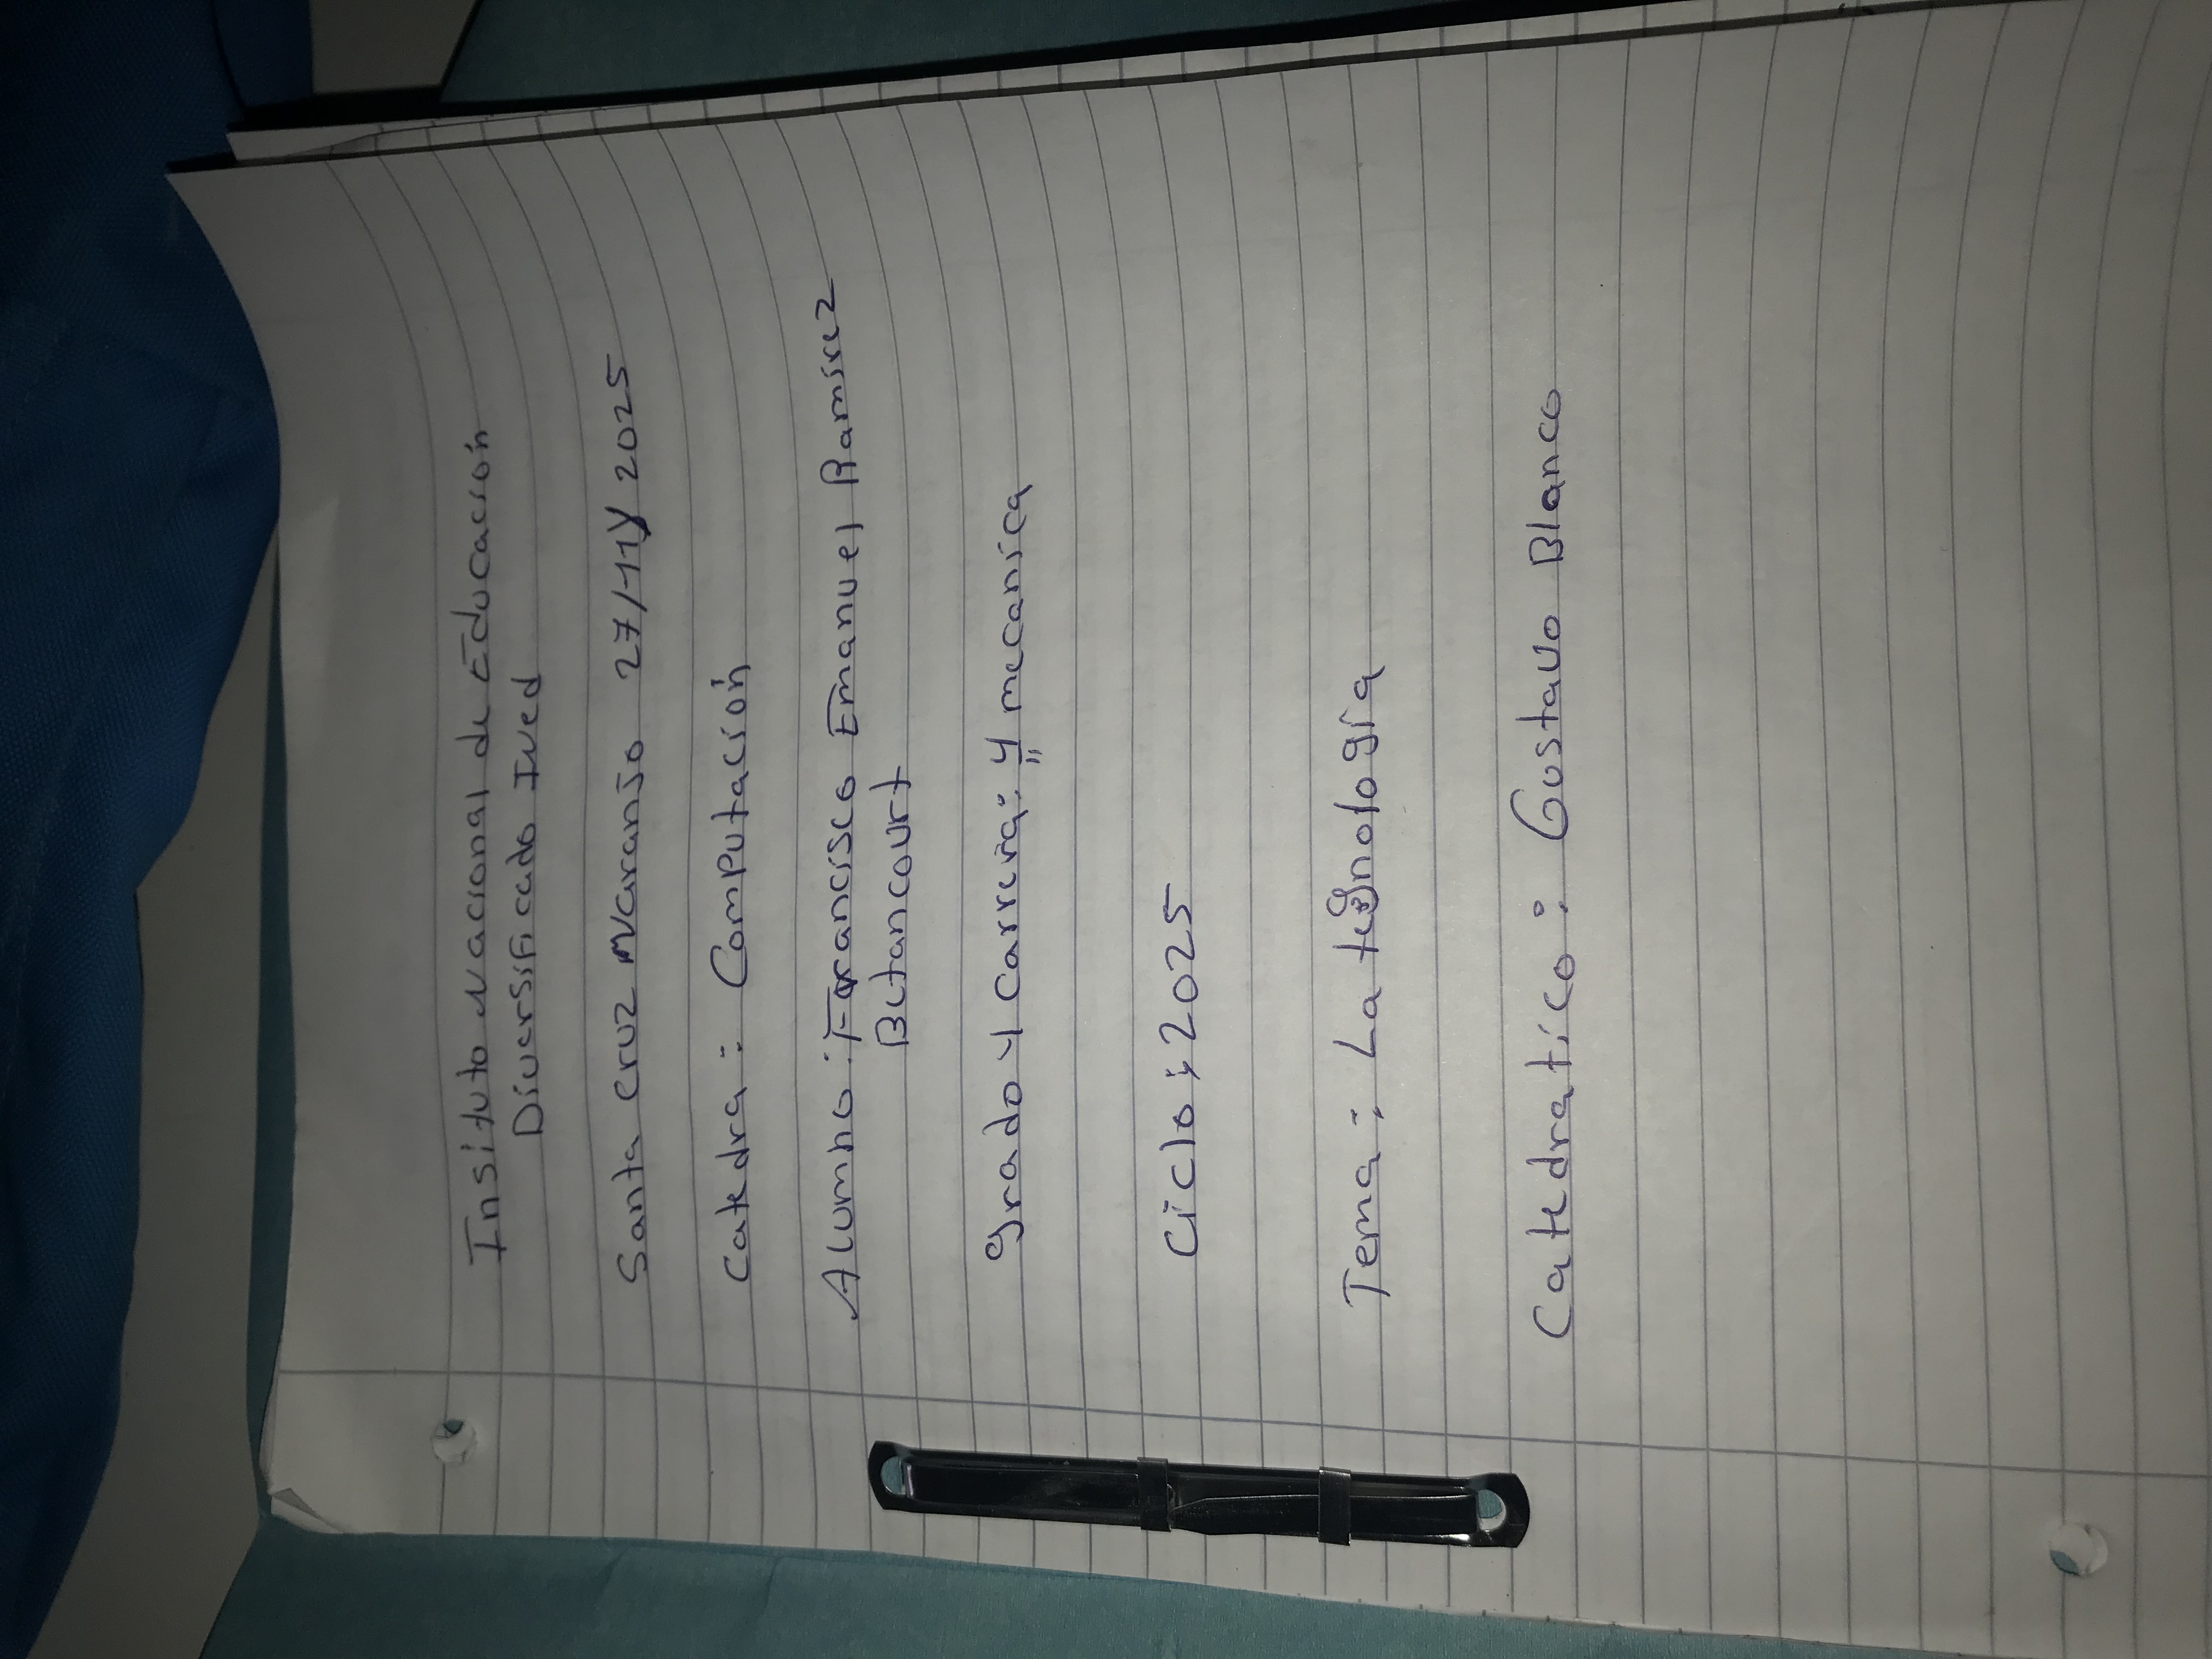 Insituto Nacional de Educación
Diversificado Ined
Santa Cruz Naranjo 27/11/2025
Catedra: Computación
Alumno: Francisco Emanuel Ramírez
Betancourt
grado y carrera: 4 mecanica
Ciclo: 2025
Tema: La tegnología
Catedratico: Gustavo Blanco